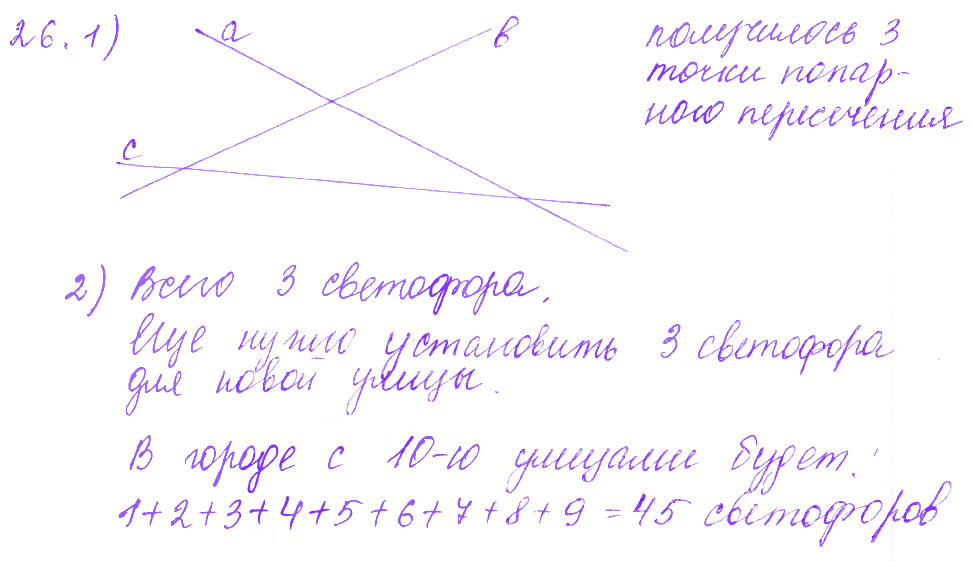 26. 1)
a
в
c
получилось 3
точки попар-
ного пересечения
2) Всего 3 светофора.
Еще нужно установить 3 светофора
для новой улицы.
В городе с 10-ю улицами будет:
1+2+3+4+5+6+7+8+9=45 светофоров